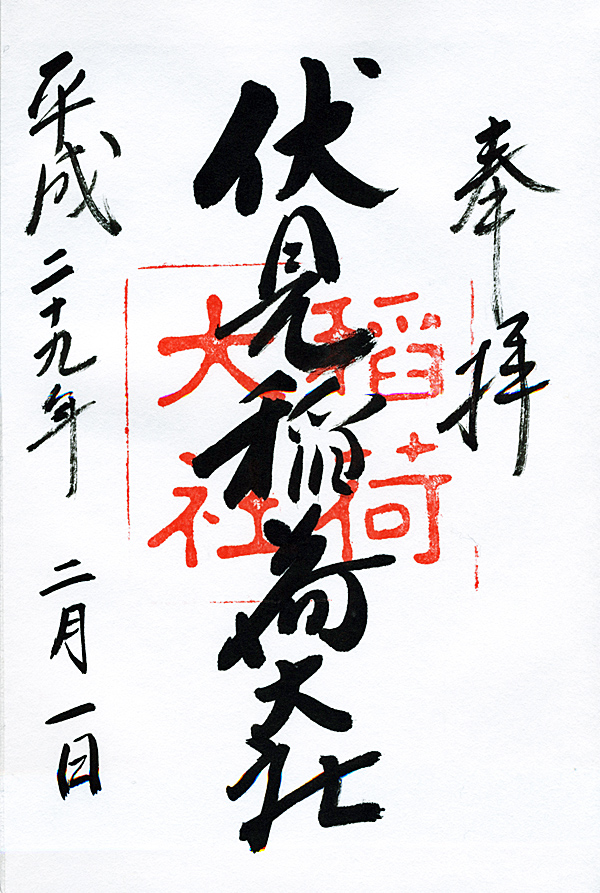 奉拝
伏見稲荷大社
稲荷
大社
平成二十九年 二月一日